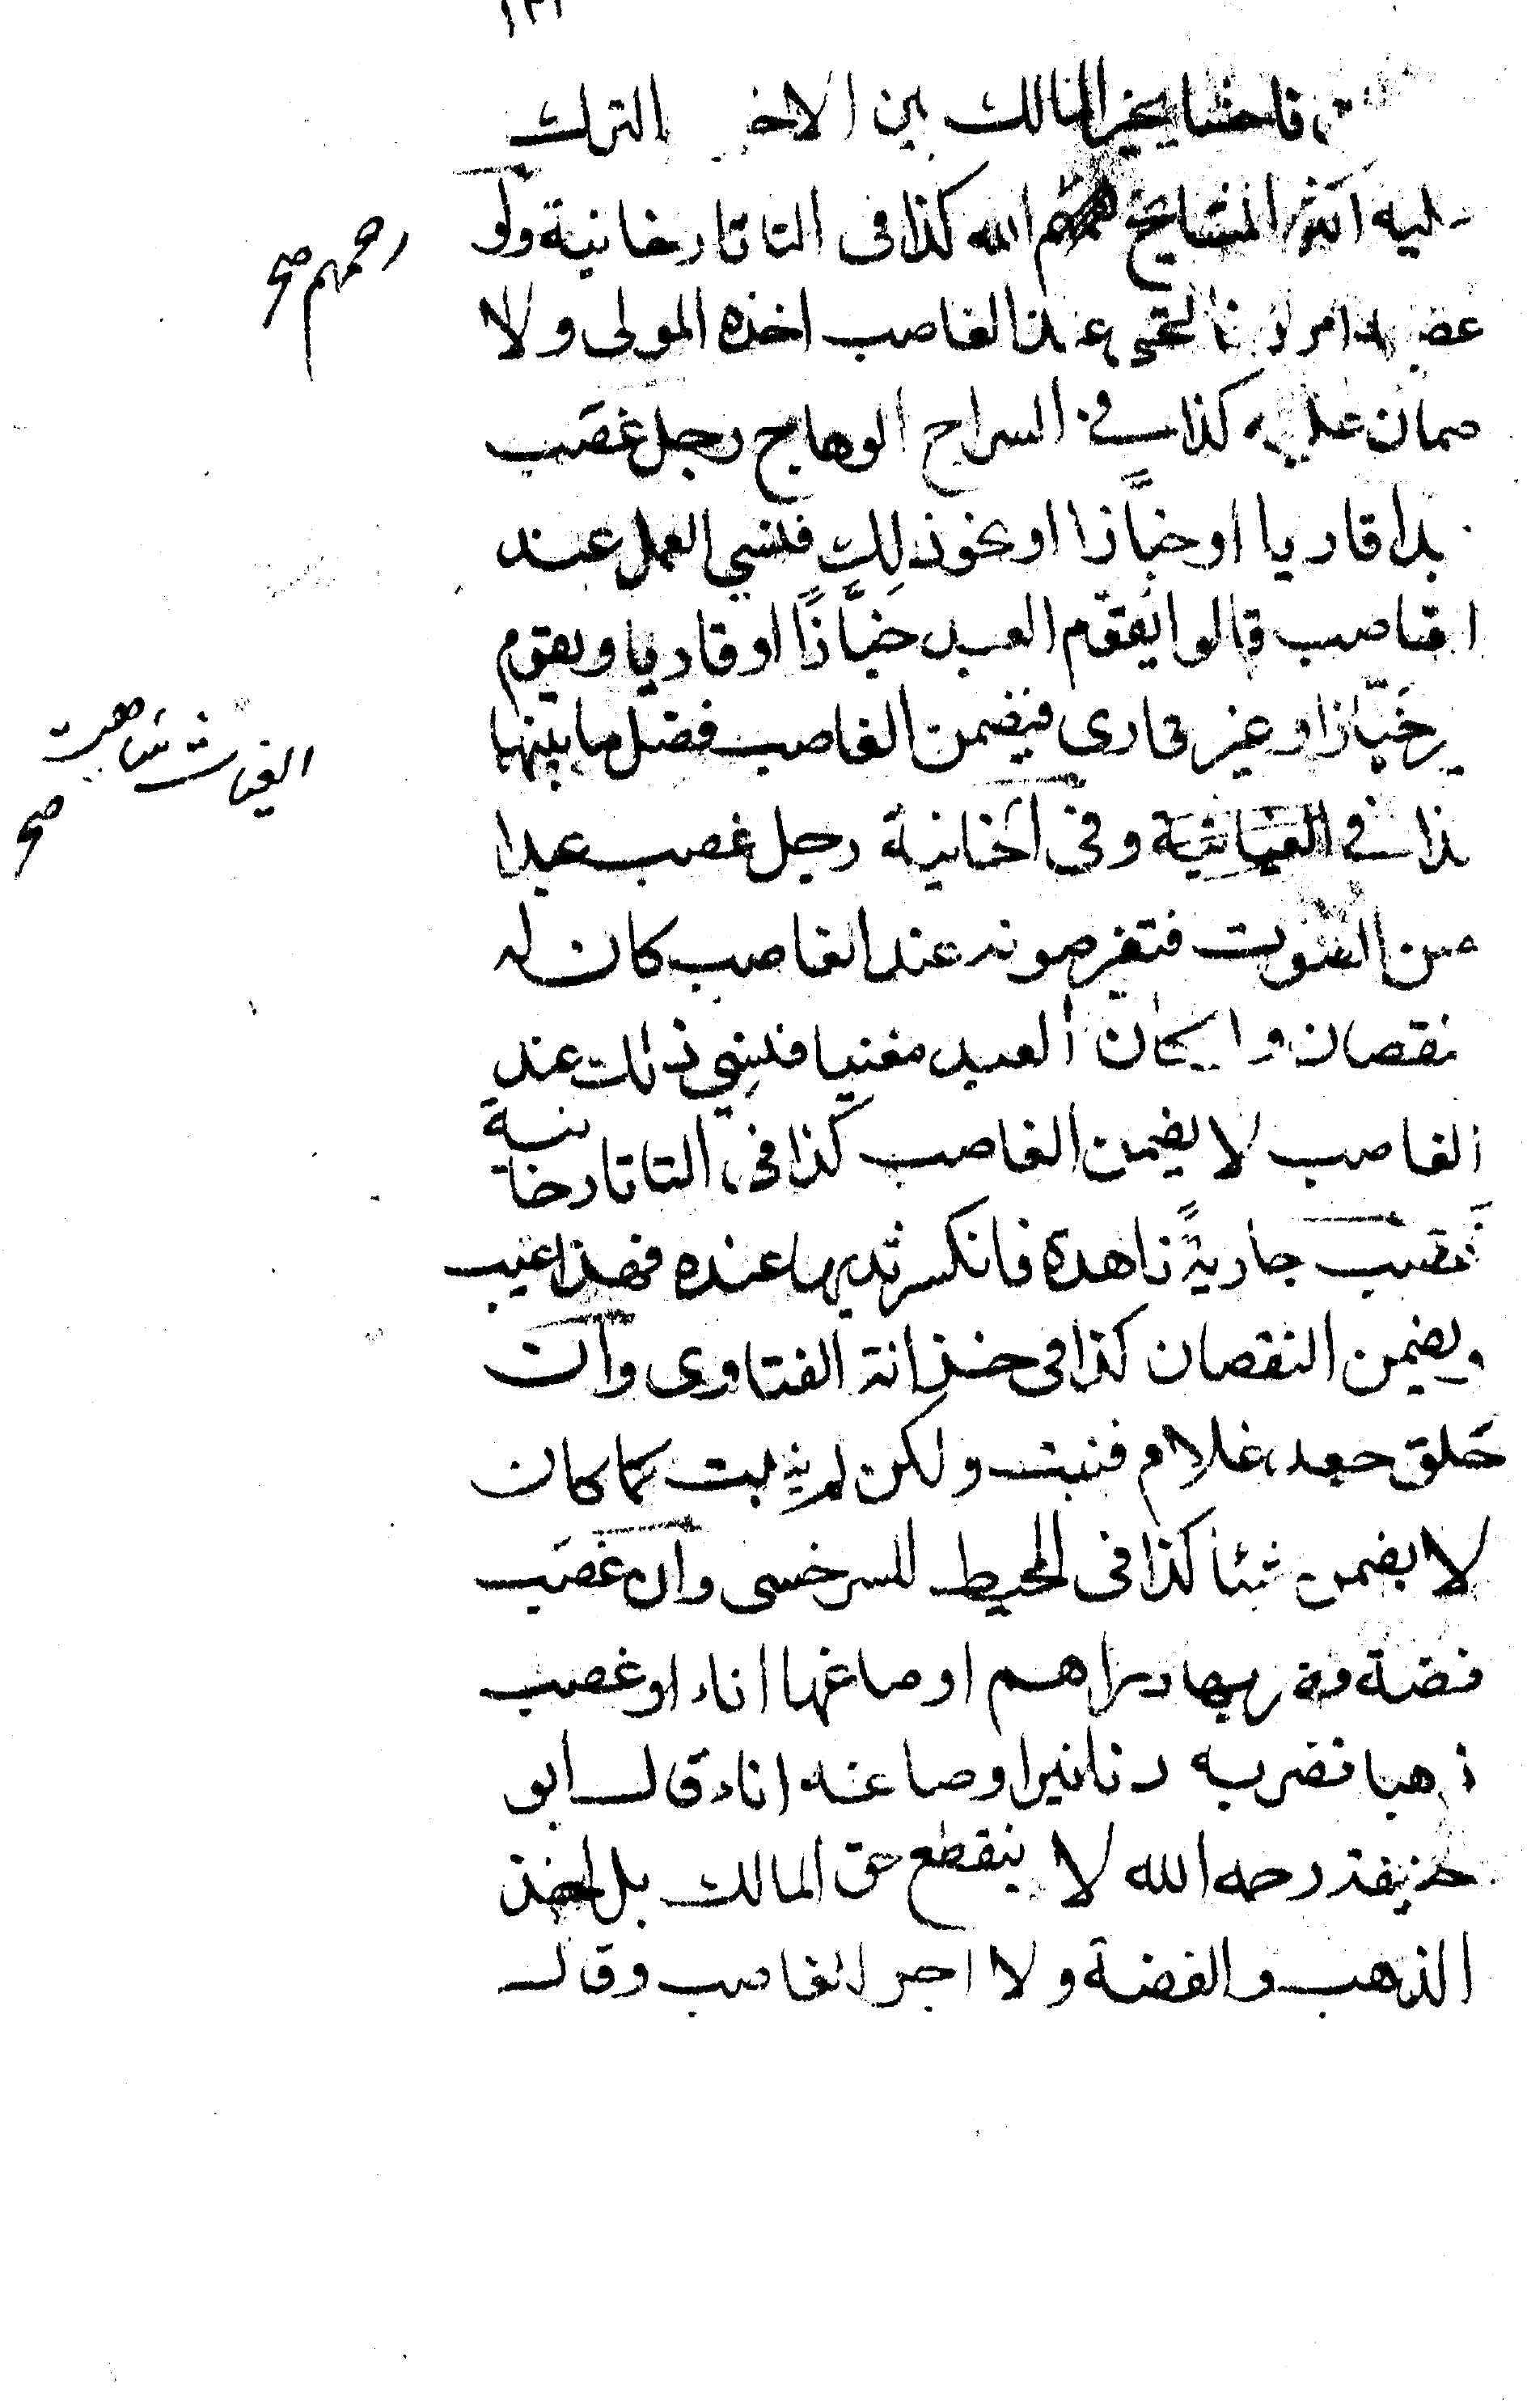 فاحشا يخير المالك بين الاخذ الترك
عليه اكثر المشايخ رحمهم الله كذا فى التاتارخانية ولو
رحمهم صح
غصب امرد فالتحى عند الغاصب اخذه المولى ولا
ضمان عليه كذا فى السراج الوهاج رجل غصب
قاريا او خبَّازا او نحو ذلك فنسي العمل عند
الغاصب قالوا يقوَّم العبد خبَّازًا او قاريا ويقوم
خبّازا وغير قارى فيضمن الغاصب فضل ما بينهما
الغياث
صح
كذا فى الغياثية وفى الخانية رجل غصب عبدا
حسن الصوت فتغير صوته عند الغاصب كان له
نقصان وا كان العبد مغنيا فنسي ذلك عند
الغاصب لا يضمن الغاصب كذا فى التاتارخانية
غصب جاريةً ناهدة فانكسر ثديها عنده فهذا عيب
ويضمن النقصان كذا فى خزانة الفتاوى وان
حَلق جعد غلام فنبت ولكن لم ينبت كما كان
لا يضمن شئا كذا فى المحيط للسرخسى وان غصَب
فضة وضربها دراهم او صاغها اناء او غصب
ذهبا فضربه دنانيرا وصاغه اناء قال ابو
حنيفة رحمه الله لا ينقطع حق المالك بل
الذهب والفضة ولا اجر للغاصب وقال